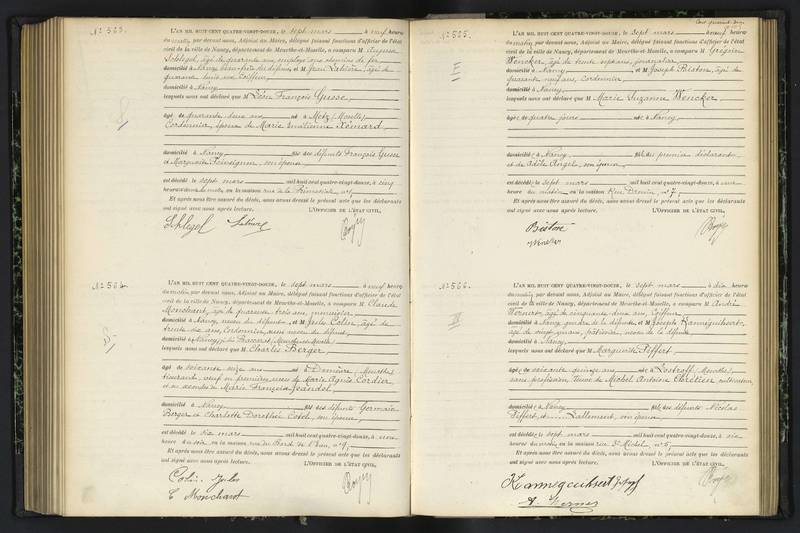 N° 563.
L'AN MIL HUIT CENT QUATRE-VINGT-DOUZE, le sept mars à neuf heures
du matin, par devant nous, Adjoint au Maire, délégué faisant fonctions d'officier de l'état
civil de la ville de Nancy, département de Meurthe-et-Moselle, a comparu M
Schlegel, âgé de quarante ans, employé aux chemins de fer
domicilié à Nancy, du défunt, et M Jean, âgé de
quarante ans, Coiffeur
domicilié à Nancy
lesquels nous ont déclaré que M Léon François Gusse
âgé de quarante deux ans né à Metz (Moselle)
Cordonnier, époux de Marie
domicilié à Nancy fils des défunts François Gusse
et Marguerite, son épouse
est décédé le sept mars mil huit cent quatre-vingt-douze, à cinq
heures du matin, en la maison rue de la Primatiale, n°
Et après nous être assuré du décès, nous avons dressé le présent acte que les déclarants
ont signé avec nous après lecture. L'OFFICIER DE L'ÉTAT CIVIL,
Schlegel
N° 564.
L'AN MIL HUIT CENT QUATRE-VINGT-DOUZE, le sept mars à neuf heures
du matin, par devant nous, Adjoint au Maire, délégué faisant fonctions d'officier de l'état
civil de la ville de Nancy, département de Meurthe-et-Moselle, a comparu M Claude
Monchant, âgé de quarante trois ans, menuisier
domicilié à Nancy, neveu du défunt, et M Jules Colin, âgé de
trente six ans, Cordonnier, aussi neveu du défunt
domicilié à (Meurthe et Moselle)
lesquels nous ont déclaré que M Charles Berger
âgé de soixante seize ans né à (Meurthe)
veuf en premières noces de Marie Agnès Cordier
et en secondes de Marie Françoise
domicilié à Nancy fils des défunts Germain
Berger et Charlotte Dorothée, son épouse
est décédé le six mars mil huit cent quatre-vingt-douze, à une
heure du soir, en la maison rue du Bord de l'Eau, n° 9
Et après nous être assuré du décès, nous avons dressé le présent acte que les déclarants
ont signé avec nous après lecture. L'OFFICIER DE L'ÉTAT CIVIL,
Colin Jules
C Monchant
N° 565.
L'AN MIL HUIT CENT QUATRE-VINGT-DOUZE, le sept mars à neuf heures
du matin, par devant nous, Adjoint au Maire, délégué faisant fonctions d'officier de l'état
civil de la ville de Nancy, département de Meurthe-et-Moselle, a comparu M Grégoire
Wencker, âgé de trente sept ans, journalier
domicilié à Nancy et M Joseph Biston, âgé de
quarante neuf ans, cordonnier
domicilié à Nancy
lesquels nous ont déclaré que M Marie Suzanne Wencker
âgée de quatre jours née à Nancy
domiciliée à Nancy fille du premier déclarant
et de Adèle Angel, son épouse
est décédée le sept mars mil huit cent quatre-vingt-douze, à une
heure du matin en la maison Rue Drouin, n° 7
Et après nous être assuré du décès, nous avons dressé le présent acte que les déclarants
ont signé avec nous après lecture. L'OFFICIER DE L'ÉTAT CIVIL,
Biston
Wencker
N° 566.
L'AN MIL HUIT CENT QUATRE-VINGT-DOUZE, le sept mars à dix heures
du matin, par devant nous, Adjoint au Maire, délégué faisant fonctions d'officier de l'état
civil de la ville de Nancy, département de Meurthe-et-Moselle, a comparu M André
Werner, âgé de cinquante deux ans, Coiffeur
domicilié à Nancy gendre de la défunte, et M Joseph
âgé de vingt ans, pâtissier, neveu de la défunte
domicilié à Nancy
lesquels nous ont déclaré que M Marguerite Piffert
âgée de soixante quinze ans née à Lostroff (Meurthe)
sans profession, Veuve de Michel Antoine Chrétien cultivateur
domiciliée à Nancy fille des défunts Nicolas
Piffert, et Lallement, son épouse
est décédée le sept mars mil huit cent quatre-vingt-douze, à six
heures du matin en la maison rue St Michel, n° 5
Et après nous être assuré du décès, nous avons dressé le présent acte que les déclarants
ont signé avec nous après lecture. L'OFFICIER DE L'ÉTAT CIVIL,
A. Werner